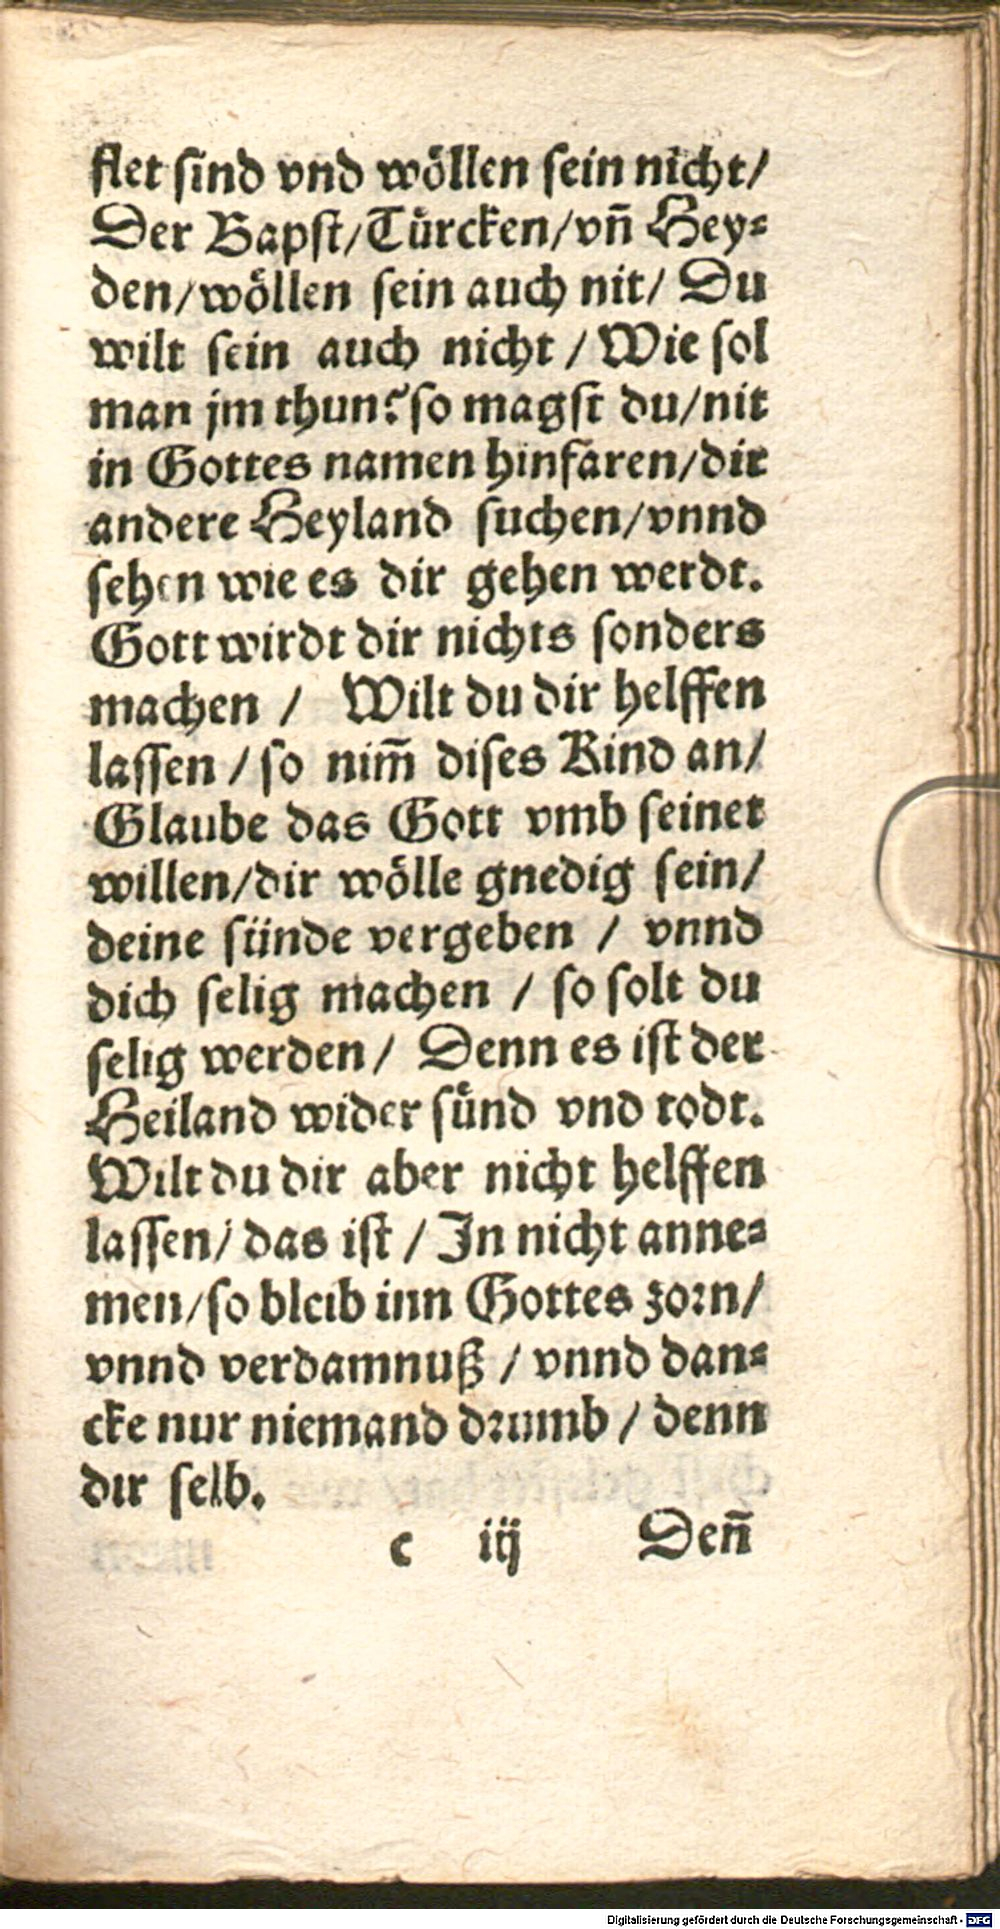 flet sind vnd wöllen sein nicht/
Der Bapst/Türcken/vñ Hey⸗
den/wöllen sein auch nit/ Du
wilt sein auch nicht / Wie sol
man jm thun? so magst du/nit
in Gottes namen hinfaren/dir
andere Heyland suchen/vnnd
sehen wie es dir gehen werdt.
Gott wirdt dir nichts sonders
machen / Wilt du dir helffen
lassen / so nim̃ dises Kind an/
Glaube das Gott vmb seinet
willen/dir wölle gnedig sein/
deine sünde vergeben / vnnd
dich selig machen / so solt du
selig werden/ Denn es ist der
Heiland wider sünd vnd todt.
Wilt du dir aber nicht helffen
lassen/ das ist / In nicht anne⸗
men/so bleib inn Gottes zorn/
vnnd verdamnuß / vnnd dan⸗
cke nur niemand drumb / denn
dir selb.
c iij Deñ
Digitalisierung gefördert durch die Deutsche Forschungsgemeinschaft - DFG